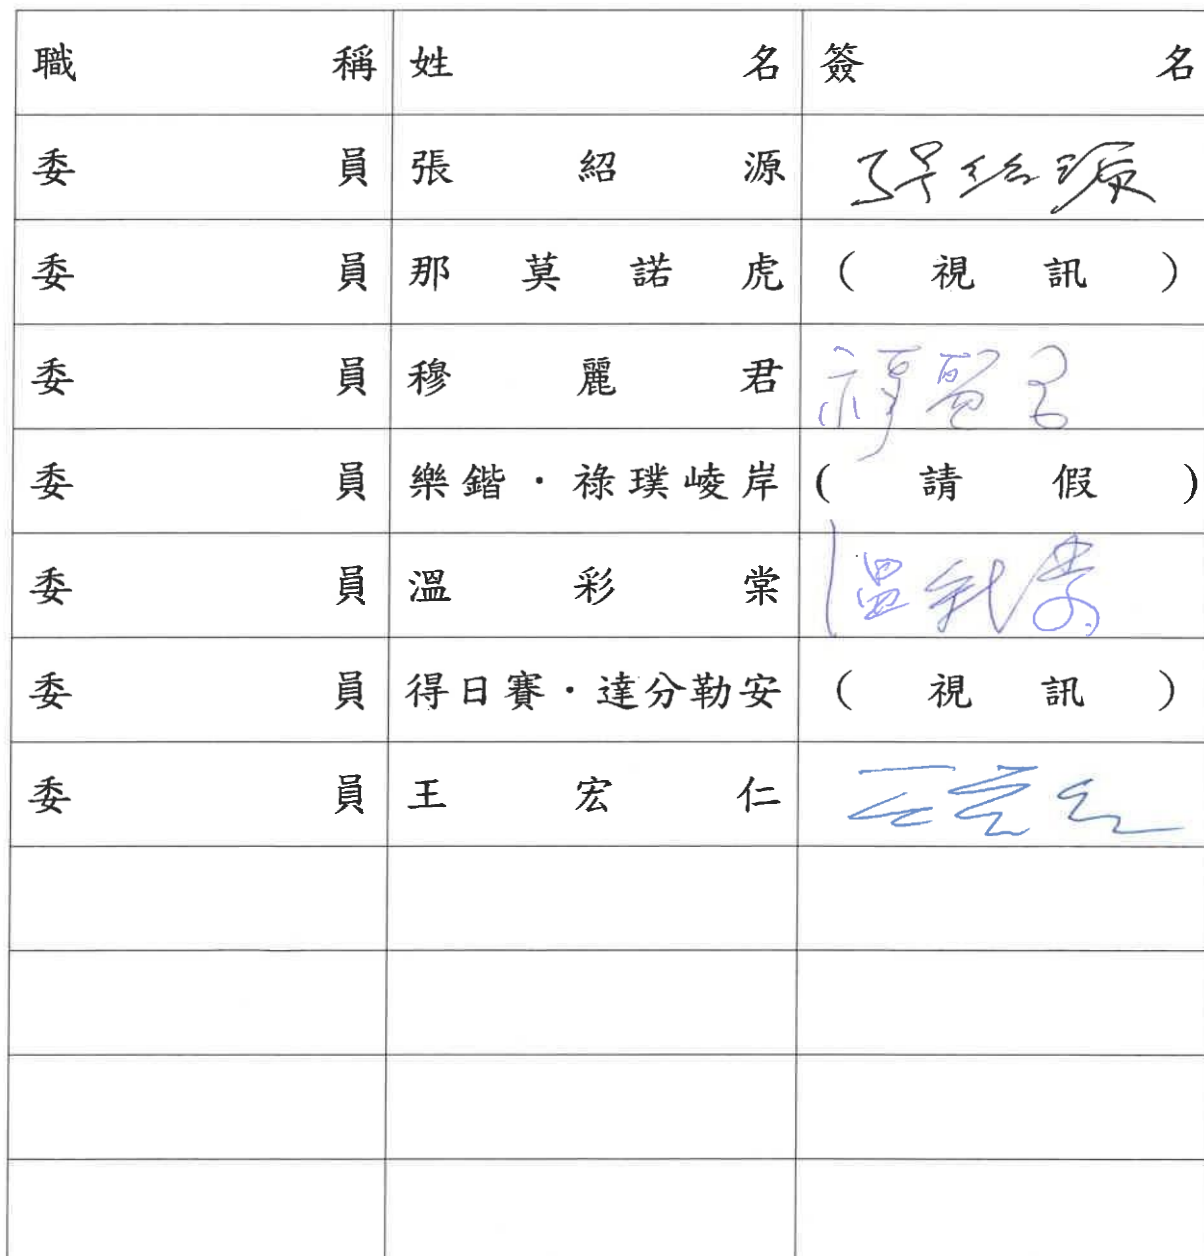 職稱 姓名 簽名
委員 張紹源 張紹源
委員 那莫諾虎 (視訊)
委員 穆麗君 穆麗君
委員 樂鍇・祿璞崚岸 (請假)
委員 溫彩棠 溫彩棠
委員 得日賽・達分勒安 (視訊)
委員 王宏仁 王宏仁